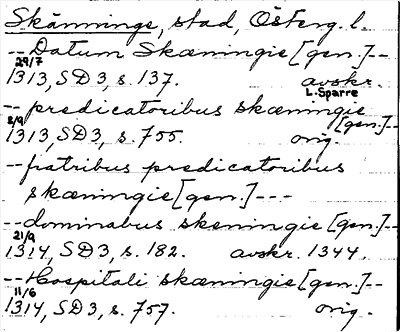 Skänninge, stad, Österg. l.
-- Datum Skæningie [gen.] --
29/7
1313, SD 3, s. 137. avskr.
L. Sparre
-- predicatoribus skæningie
[gen.] --
8/9
1313, SD 3, s. 755. orig.
-- fratribus predicatoribus
skæningie [gen.] ---
-- dominabus skeningie [gen.] --
21/9
1314, SD 3, s. 182. avskr. 1344.
-- Hospitali skæningie [gen.] --
11/6
1314, SD 3, s. 757. orig.